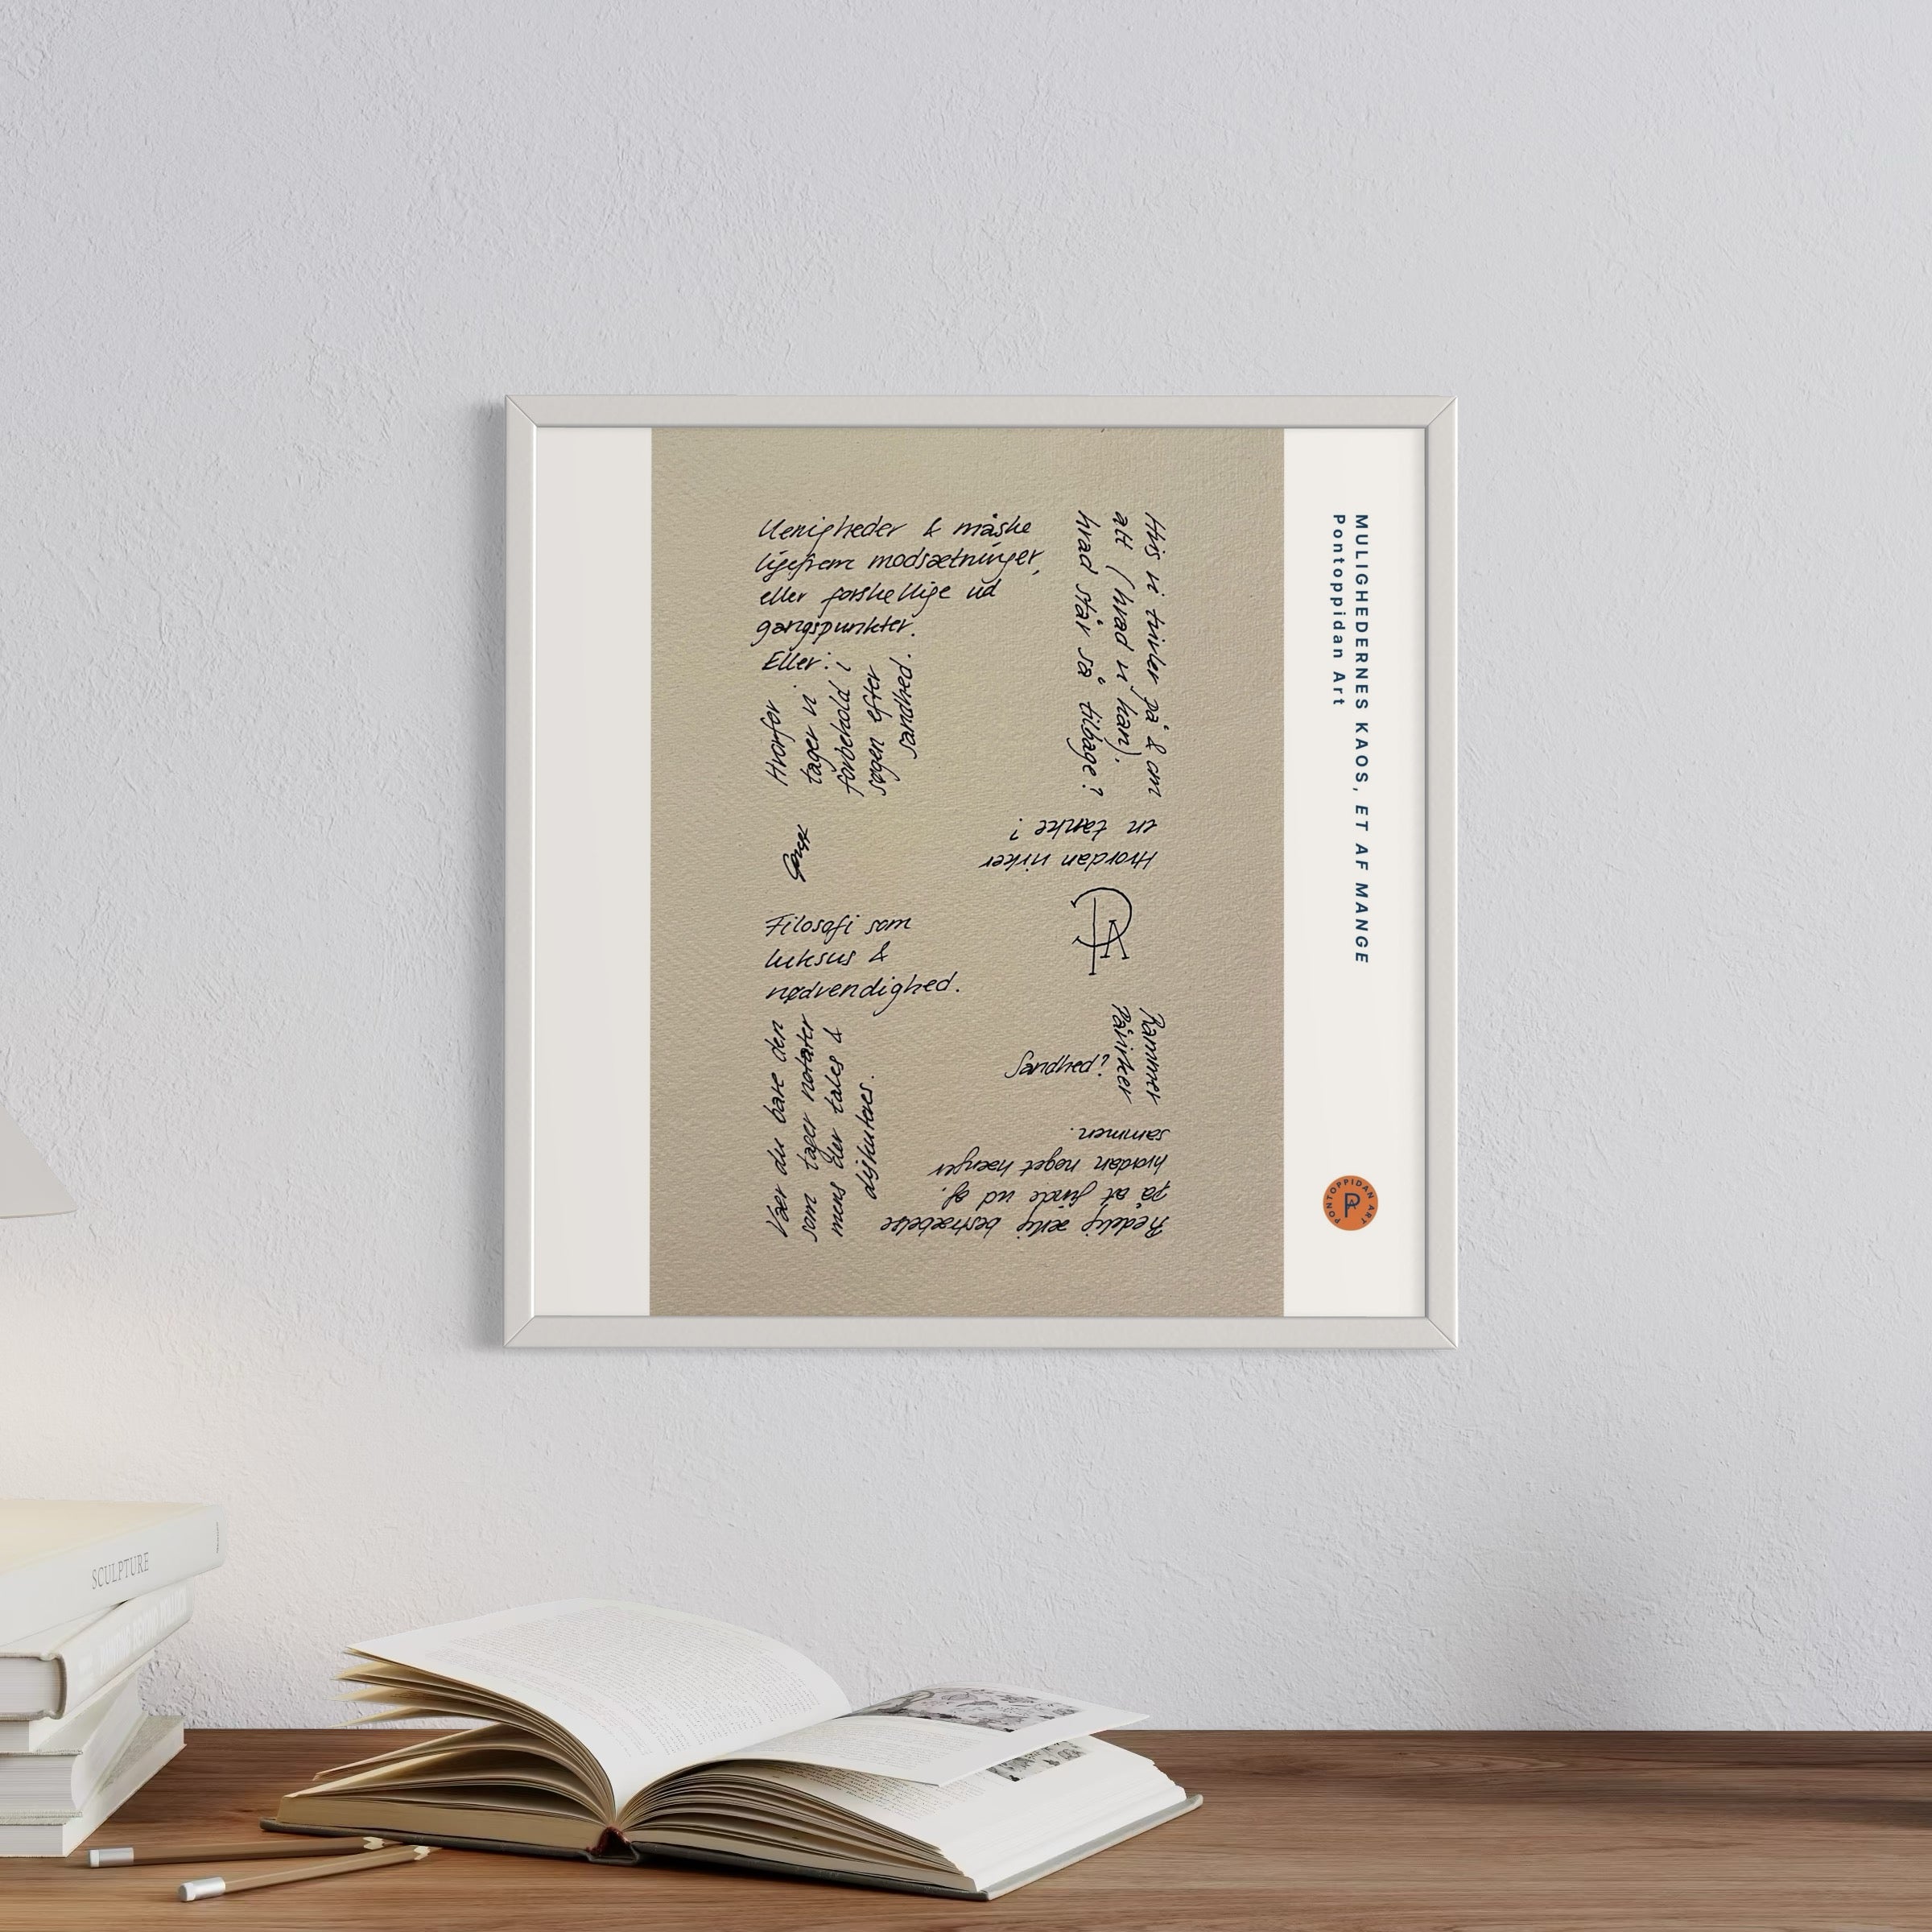 Uenigheder & måske
ligefrem modsætninger,
eller forskellige ud
gangspunkter.
Eller:
Hvorfor
tager vi
forbehold i
søgen efter
sandhed.
Hvis vi tvivler på & om
alt (hvad vi kan).
hvad står så tilbage?
Hvordan virker
en tanke?
Filosofi som
luksus &
nødvendighed.
Rammer
Påvirker
Sandhed?
Vær du bare den
som tager notater
mens der tales &
diskuteres.
Redelig ærlig bestræbelse
på at finde ud af.
hvordan noget hænger
sammen.
MULIGHEDERNES KAOS, ET AF MANGE
Pontoppidan Art
PONTOPPIDAN ART
SCULPTURE